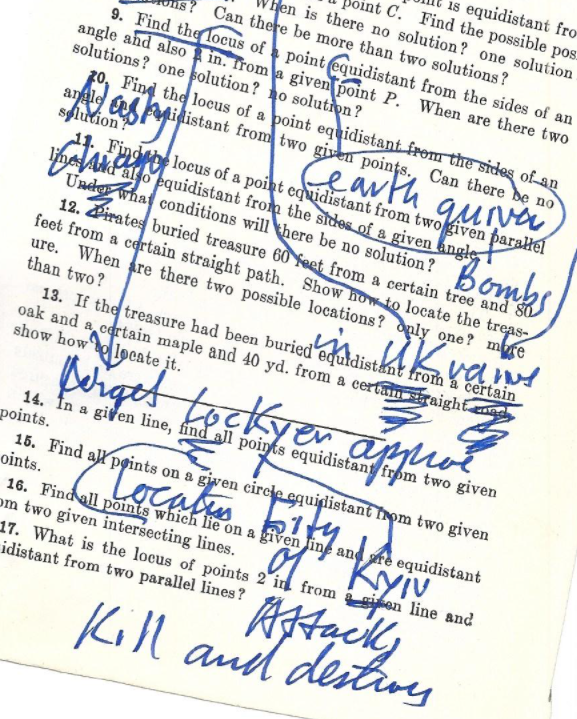 point is equidistant fro
point C. Find the possible pos
When is there no solution? one solution
Can there be more than two solutions?
9. Find the locus of a point equidistant from the sides of an
angle and also 2 in. from a given point P. When are there two
solutions? one solution? no solution?
10. Find the locus of a point equidistant from the sides of an
angle and equidistant from two given points. Can there be no
solution?
11. Find the locus of a point equidistant from two given parallel
lines and also equidistant from the sides of a given angle.
Under what conditions will there be no solution?
12. Pirates buried treasure 60 feet from a certain tree and 80
feet from a certain straight path. Show how to locate the treas-
ure. When are there two possible locations? only one? more
than two?
13. If the treasure had been buried equidistant from a certain
oak and a certain maple and 40 yd. from a certain straight road,
show how to locate it.
14. In a given line, find all points equidistant from two given
points.
15. Find all points on a given circle equidistant from two given
oints.
16. Find all points which lie on a given line and are equidistant
om two given intersecting lines.
17. What is the locus of points 2 in. from a given line and
idistant from two parallel lines?
earth quiver
Bombs
in UKraine
Target Lockyer
Locates City
of Kyiv
Attack,
Kill and destroy